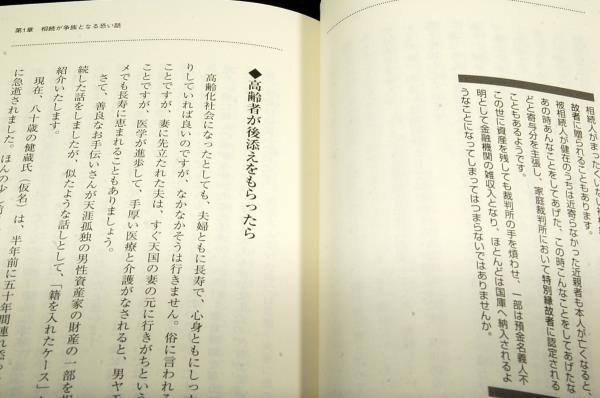 相続人がまったくいない被相
故者に贈られることもあります。
被相続人が健在のうちは近寄らなかった近親者も本人が亡くなると、
あの時あんなことをしてあげた、この時こんなことをしてあげたな
どと寄与分を主張し、家庭裁判所において特別縁故者に認定される
こともあるようです。
この世に資産を残しても裁判所の手を煩わせ、一部は預金名義人不
明として金融機関の雑収入となり、ほとんどは国庫へ納入されるよ
うなことになってしまってはつまらないではありませんか。
第1章 相続が争族となる恐い話
◆高齢者が後添えをもらったら
高齢化社会になったとしても、夫婦ともに長寿で、心身ともにしっか
りしていれば良いのですが、なかなかそうは行きません。俗に言われる
ことですが、妻に先立たれた夫は、すぐ天国の妻の元に行きがちという
ことですが、医学が進歩して、手厚い医療と介護がなされると、男ヤモ
メでも長寿に恵まれることもありましょう。
さて、善良なお手伝いさんが天涯孤独の男性資産家の財産の一部を相
続した話をしましたが、似たような話しとして、「籍を入れたケース」を
紹介いたします。
現在、八十歳の健蔵氏（仮名）は、半年前に五十年間連れ添っ
に急逝されました。ほんの少し前